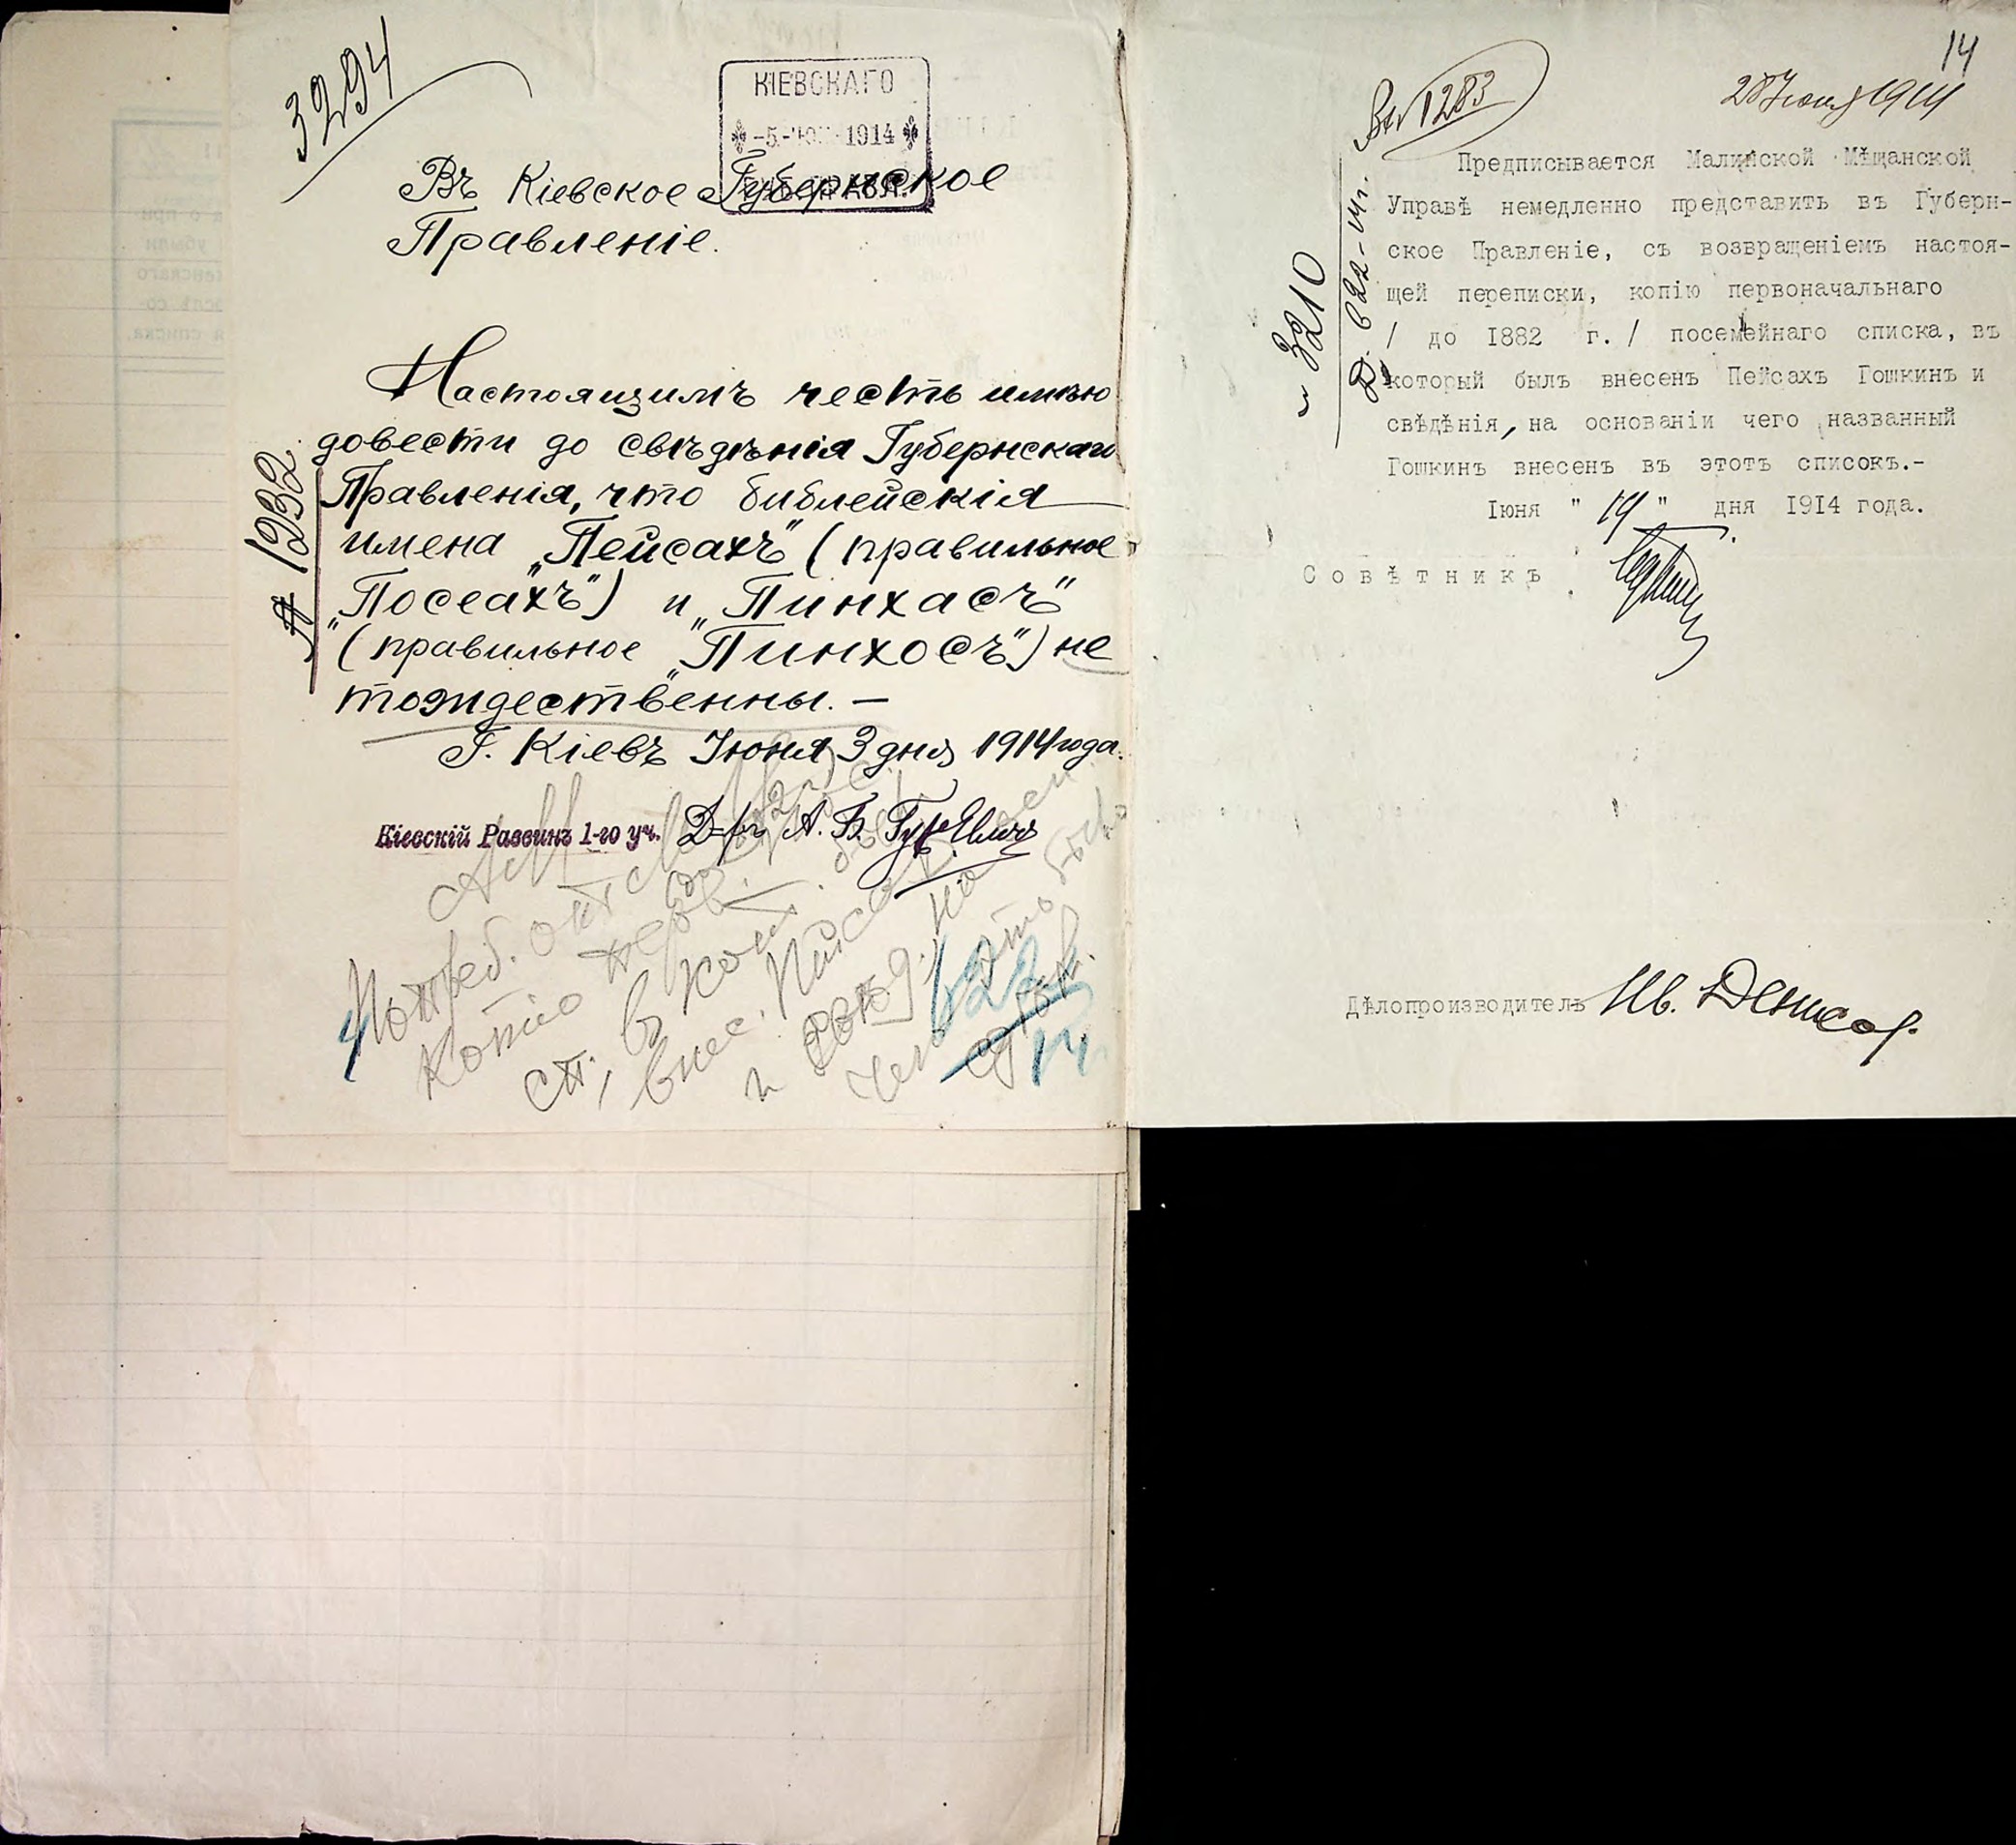 3294
КІЕВСКАГО
-5- 1914
Въ Кіевское Губернское
Правленіе.
Настоящимъ честь имѣю
довести до свѣдѣнія Губернскаго
Правленія, что библейскія
имена „Пейсахъ" (правильное
„Посеахъ") и „Пинхасъ"
(правильное „Пинхосъ") не
тождественны. —
Г. Кіевъ Іюня 3 дня 1914 года.
Кіевскій Раввинъ 1-го уч. Д-ръ А. Б. Гуревичъ
№ 1932
Потреб. от
копію перв.
сп., в кот. был
внес. Пейсах
и свѣд., на осн.
чего это было
622
14
14
Вх 1283
28 Іюня 1914
Предписывается Малинской Мѣщанской
Управѣ немедленно представить въ Губерн-
ское Правленіе, съ возвращеніемъ настоя-
щей переписки, копію первоначальнаго
/ до 1882 г. / посемейнаго списка, въ
который былъ внесенъ Пейсахъ Гошкинъ и
свѣдѣнія, на основаніи чего названный
Гошкинъ внесенъ въ этотъ списокъ.-
Іюня " 19 " дня 1914 года.
Совѣтникъ
Дѣлопроизводитель Ив.
3210
Д. 622-14 г.